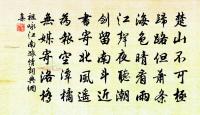 楚山不可極
歸路但蕭條
海色晴看雨
江聲夜聽潮
劍留南斗近
書寄北風遙
為報空潭橘
無媒寄洛橋
祖詠江南旅情詞典網
集